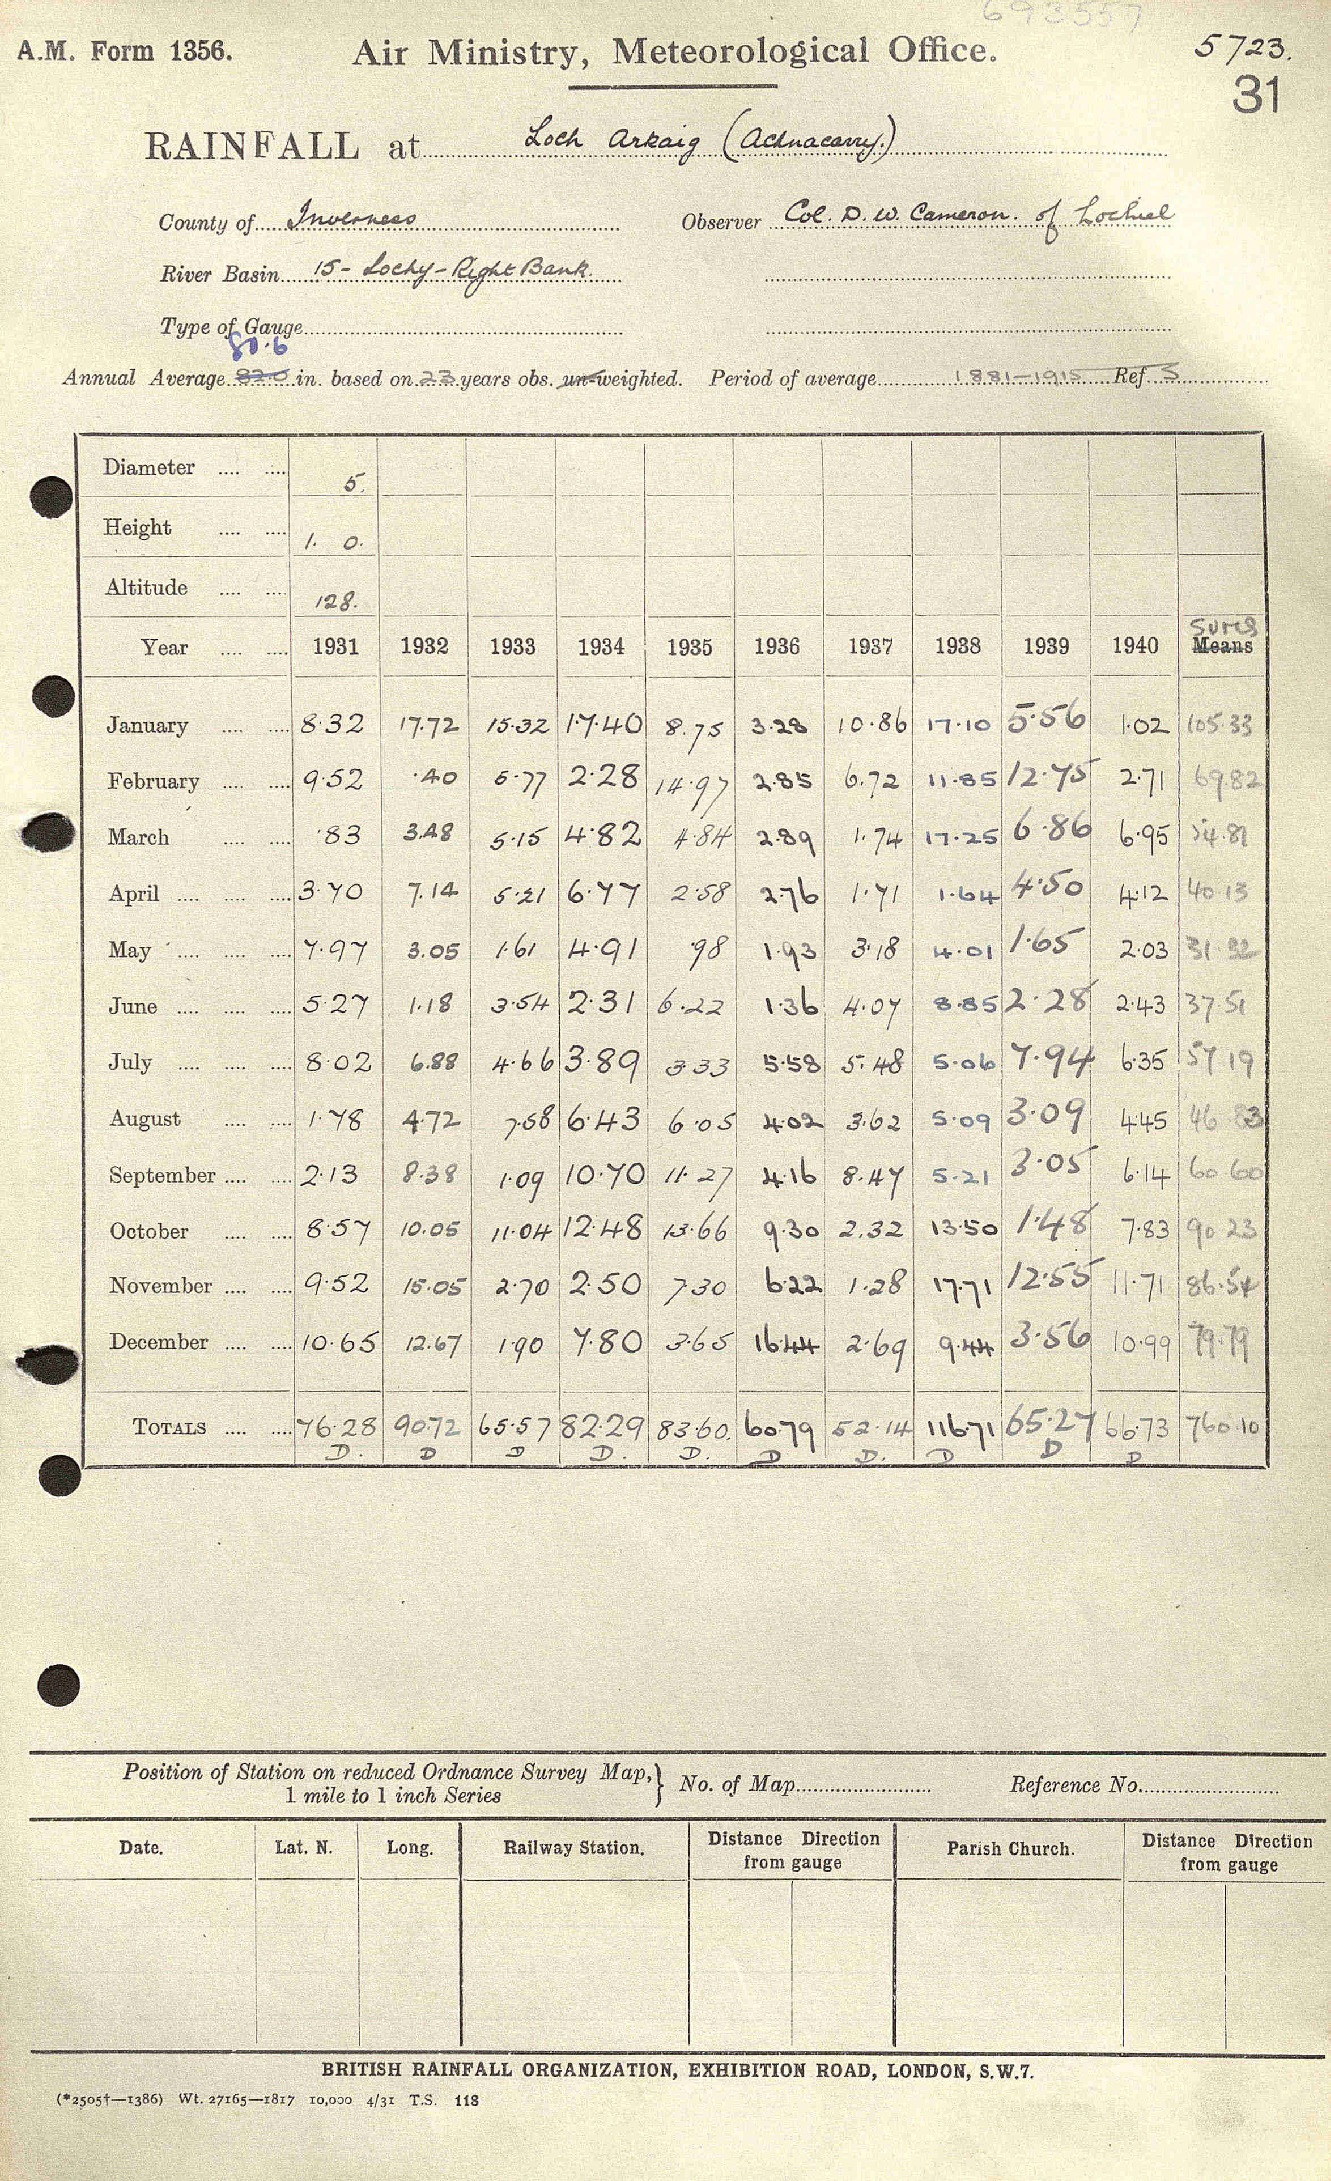 693557
A.M. Form 1356. Air Ministry, Meteorological Office. 5723.
31
RAINFALL at Loch Arkaig (Achnacarry.)
County of Inverness Observer Col. D. W. Cameron. of Lochiel
River Basin 15- Lochy-Right Bank.
Type of Gauge
80.6
Annual Average 82.0 in. based on 23 years obs. un-weighted. Period of average 1881-1915 Ref. S
Diameter .... .... 5.
Height .... .... 1. 0.
Altitude .... .... 128.
Sums
Year .... .... 1931 1932 1933 1934 1935 1936 1937 1938 1939 1940 Means
January .... .... 8.32 17.72 15.32 17.40 8.75 3.28 10.86 17.10 5.56 1.02 105.33
February .... .... 9.52 .40 5.77 2.28 14.97 2.85 6.72 11.85 12.75 2.71 69.82
March .... .... .83 3.48 5.15 4.82 4.84 2.89 1.74 17.25 6.86 6.95 54.81
April .... .... .... 3.70 7.14 5.21 6.77 2.58 2.76 1.71 1.64 4.50 4.12 40.13
May .... .... .... 7.97 3.05 1.61 4.91 .98 1.93 3.18 4.01 1.65 2.03 31.32
June .... .... .... 5.27 1.18 3.54 2.31 6.22 1.36 4.07 8.85 2.28 2.43 37.51
July .... .... .... 8.02 6.88 4.66 3.89 3.33 5.58 5.48 5.06 7.94 6.35 57.19
August .... .... 1.78 4.72 7.58 6.43 6.05 4.02 3.62 5.09 3.09 4.45 46.83
September .... .... 2.13 8.38 1.09 10.70 11.27 4.16 8.47 5.21 3.05 6.14 60.60
October .... .... 8.57 10.05 11.04 12.48 13.66 9.30 2.32 13.50 1.48 7.83 90.23
November .... .... 9.52 15.05 2.70 2.50 7.30 6.22 1.28 17.71 12.55 11.71 86.54
December .... .... 10.65 12.67 1.90 7.80 3.65 16.44 2.69 9.44 3.56 10.99 79.79
TOTALS .... .... 76.28 90.72 65.57 82.29 83.60. 60.79 52.14 116.71 65.27 66.73 760.10
D. D D D. D. D D. D D D
Position of Station on reduced Ordnance Survey Map,} No. of Map Reference No.
1 mile to 1 inch Series
Date. Lat. N. Long. Railway Station. Distance Direction Parish Church. Distance Direction
from gauge from gauge
BRITISH RAINFALL ORGANIZATION, EXHIBITION ROAD, LONDON, S.W.7.
(*2505†—1386) Wt. 27165—1817 10,000 4/31 T.S. 118